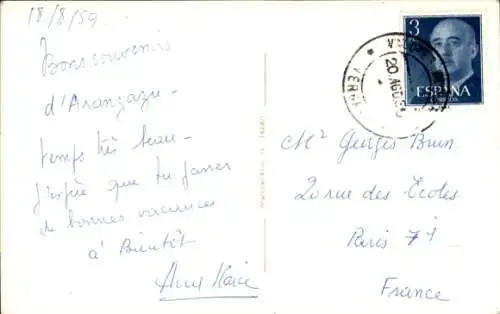 18/8/59.
Bons souvenirs
d'Aranzazu -
temps très beau -
J'espère que tu passes
de bonnes vacances
à Bientôt
Anne Marie
3
ESPAÑA
CORREOS
20 AGO
Mr Georges Brun
20 rue des Ecoles
Paris 7è
France